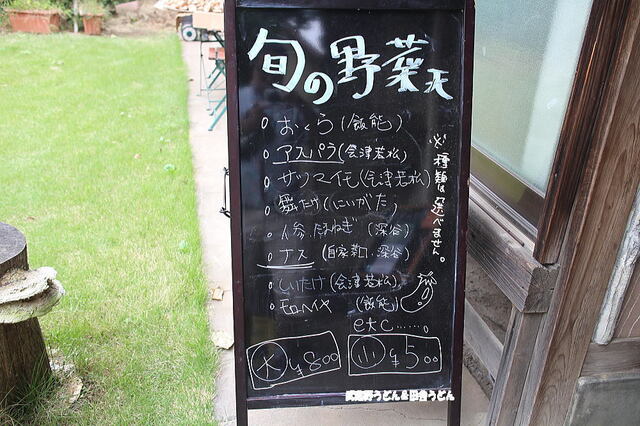 旬の野菜天
おくら(飯能)
アスパラ(会津若松)
サツマイモ(会津若松)
舞たけ(にいがた)
人参、玉ねぎ(深谷)
ナス(自家製、深谷)
しいたけ(会津若松)
モロヘイヤ(飯能)
etc......。
※種類は選べません。
大 ¥800
小 ¥500
武蔵野うどん&田舎うどん